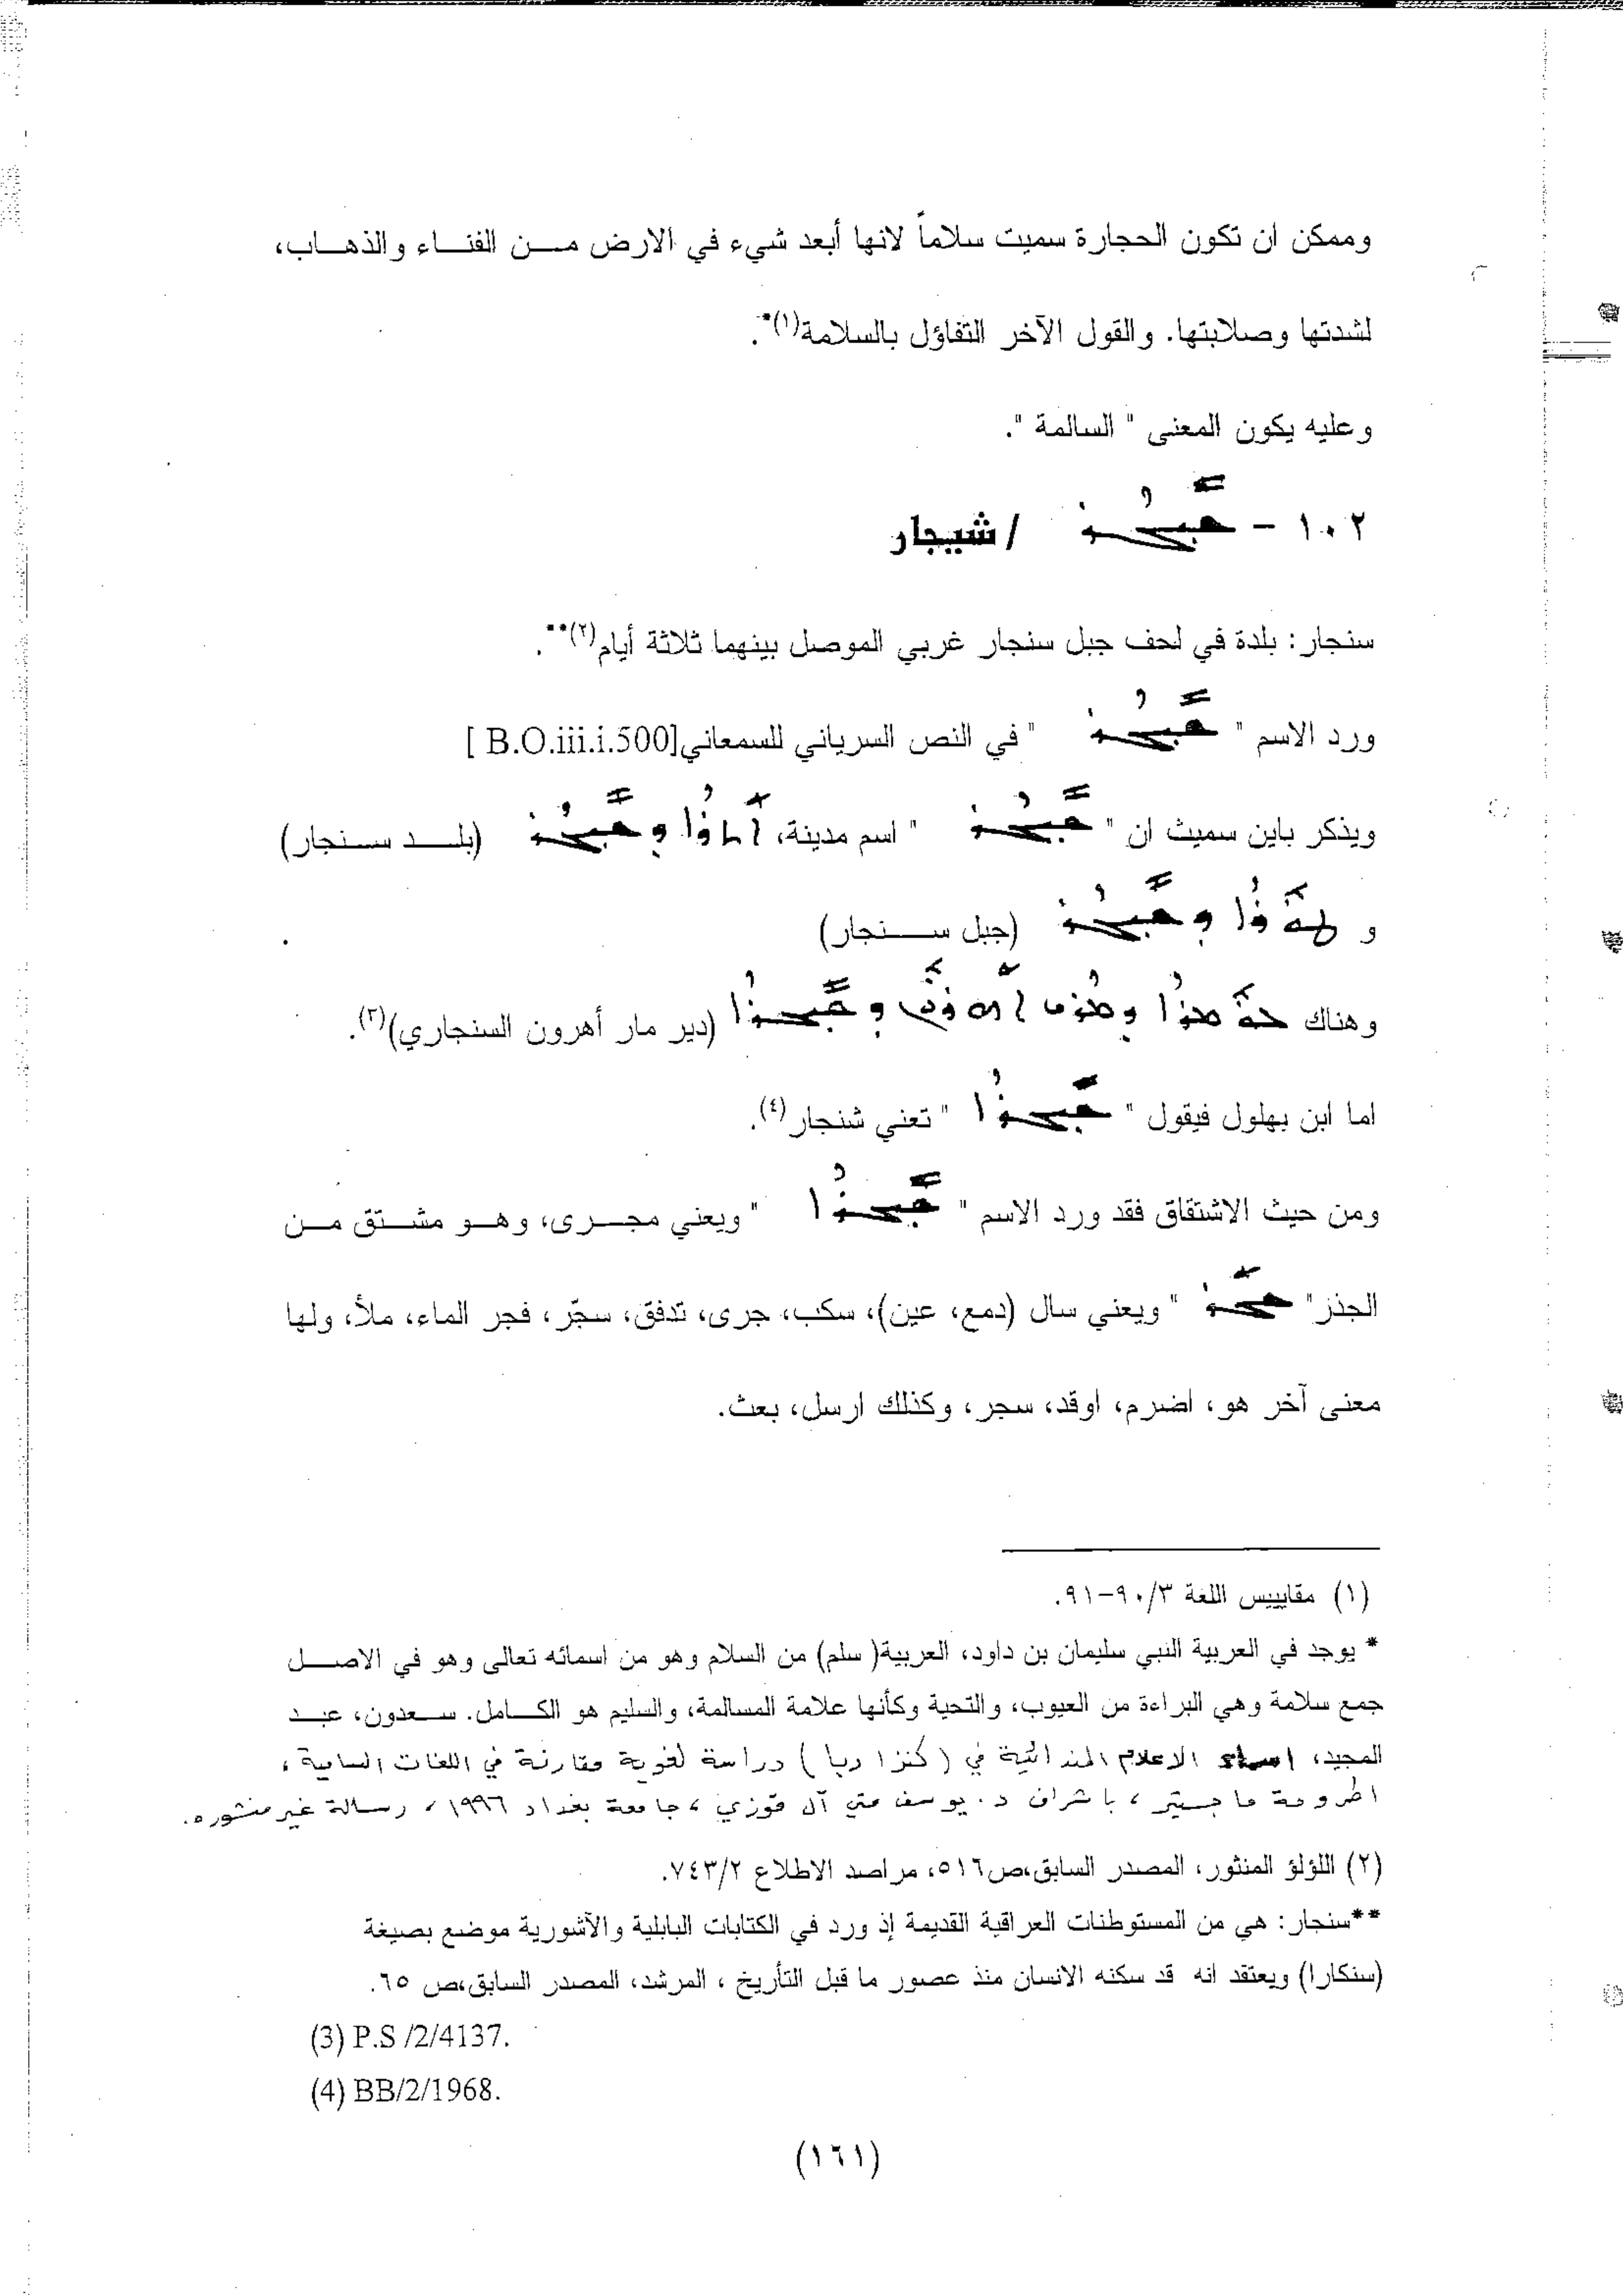 وممكن ان تكون الحجارة سميت سلاماً لانها أبعد شيء في الارض من الفناء والذهاب،
لشدتها وصلابتها. والقول الآخر التفاؤل بالسلامة(١)*.
وعليه يكون المعنى " السالمة ".
١٠٢ - ܫܝܓܪ / شيجار
سنجار: بلدة في لحف جبل سنجار غربي الموصل بينهما ثلاثة أيام(٢)**.
ورد الاسم " ܫܝܓܪ " في النص السرياني للسمعاني[B.O.iii.i.500 ]
ويذكر باين سميث ان " ܫܝܓܪ " اسم مدينة، ܐܬܪܐ ܕܫܝܓܪ (بلد سنجار)
و ܛܘܪܐ ܕܫܝܓܪ (جبل سنجار)
وهناك ܕܫܝܓܪܐ (دير مار أهرون السنجاري)(٣).
اما ابن بهلول فيقول " ܫܝܓܪܐ " تعني شنجار(٤).
ومن حيث الاشتقاق فقد ورد الاسم " ܫܝܓܪܐ " ويعني مجرى، وهو مشتق من
الجذر" ܫܓܪ " ويعني سال (دمع، عين)، سكب، جرى، تدفق، سجّر، فجر الماء، ملأ، ولها
معنى آخر هو، اضرم، اوقد، سجر، وكذلك ارسل، بعث.
(١) مقاييس اللغة ٩٠/٣-٩١.
* يوجد في العربية النبي سليمان بن داود، العربية( سلم) من السلام وهو من اسمائه تعالى وهو في الاصل
جمع سلامة وهي البراءة من العيوب، والتحية وكأنها علامة المسالمة، والسليم هو الكامل. سعدون، عبد
المجيد، اسماء الاعلام المندائية في (كنزا ربا) دراسة لغوية مقارنة في اللغات السامية،
اطروحة ماجستير، باشراف د. يوسف متي آل قوزي، جامعة بغداد ١٩٩٦، رسالة غير منشوره.
(٢) اللؤلؤ المنثور، المصدر السابق،ص٥١٦، مراصد الاطلاع ٧٤٣/٢.
**سنجار: هي من المستوطنات العراقية القديمة إذ ورد في الكتابات البابلية والآشورية موضع بصيغة
(سنكارا) ويعتقد انه قد سكنه الانسان منذ عصور ما قبل التأريخ ، المرشد، المصدر السابق،ص ٦٥.
(3) P.S /2/4137.
(4) BB/2/1968.
(١٦١)